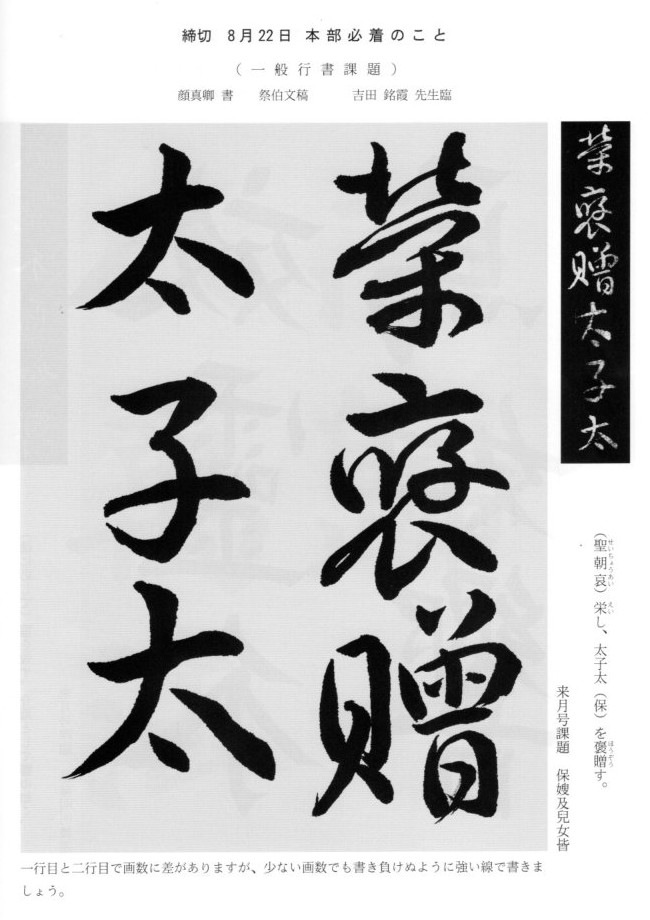 締切 8月22日 本部必着のこと
（一般行書課題）
顔真卿 書 祭伯文稿 吉田 銘霞 先生臨
榮褒贈太子太
榮褒贈
太子太
（聖朝哀）栄し、太子太（保）を褒贈す。
せいちょうあい えい ほうぞう
来月号課題 保嫂及兒女皆
一行目と二行目で画数に差がありますが、少ない画数でも書き負けぬように強い線で書きま
しょう。